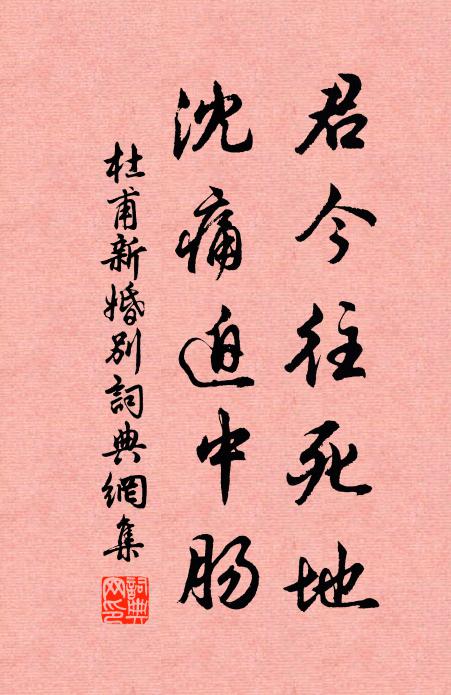 君今往死地
沈痛迫中肠
杜甫新婚别詞典網集
詞典网印